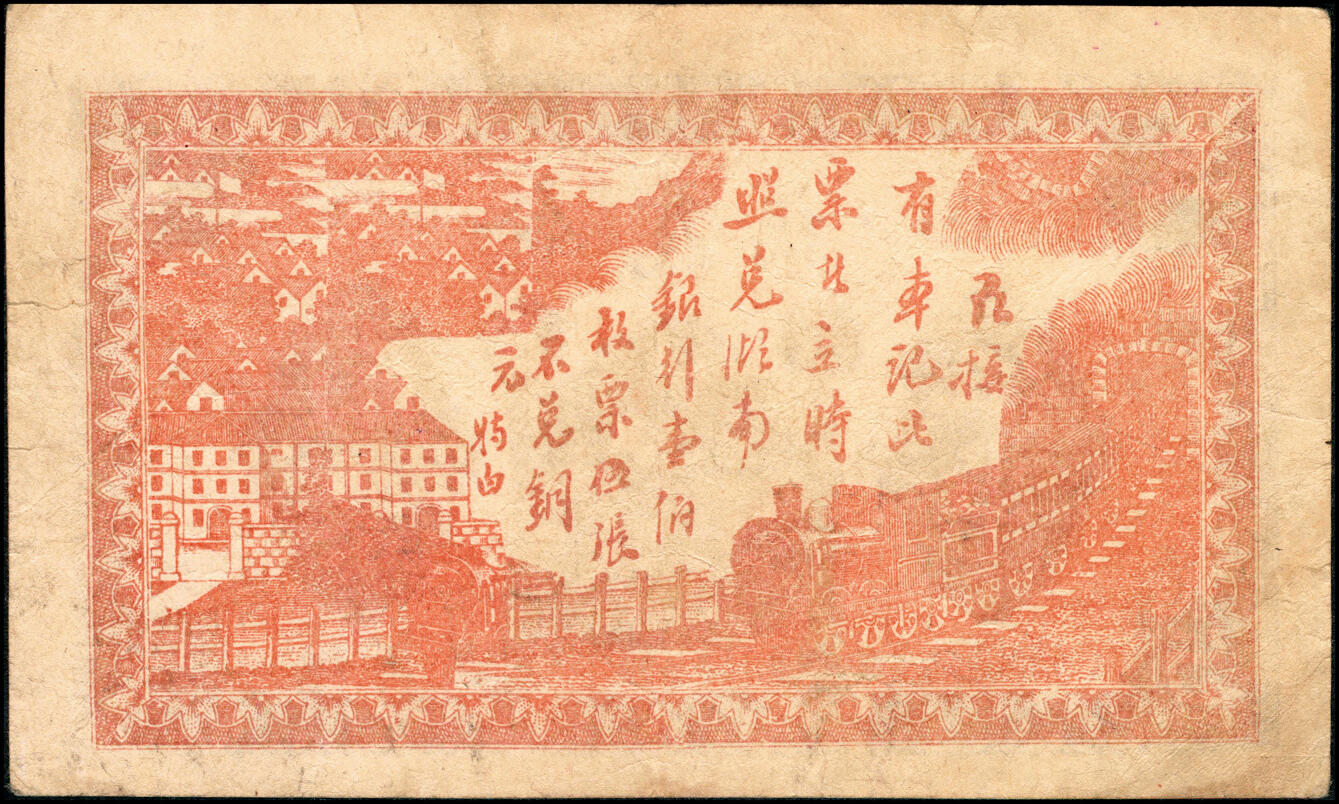 凡接
有本記此
票者立時
照兌湖南
銀行壹佰
枚票伍張
不兌銅
元
特白